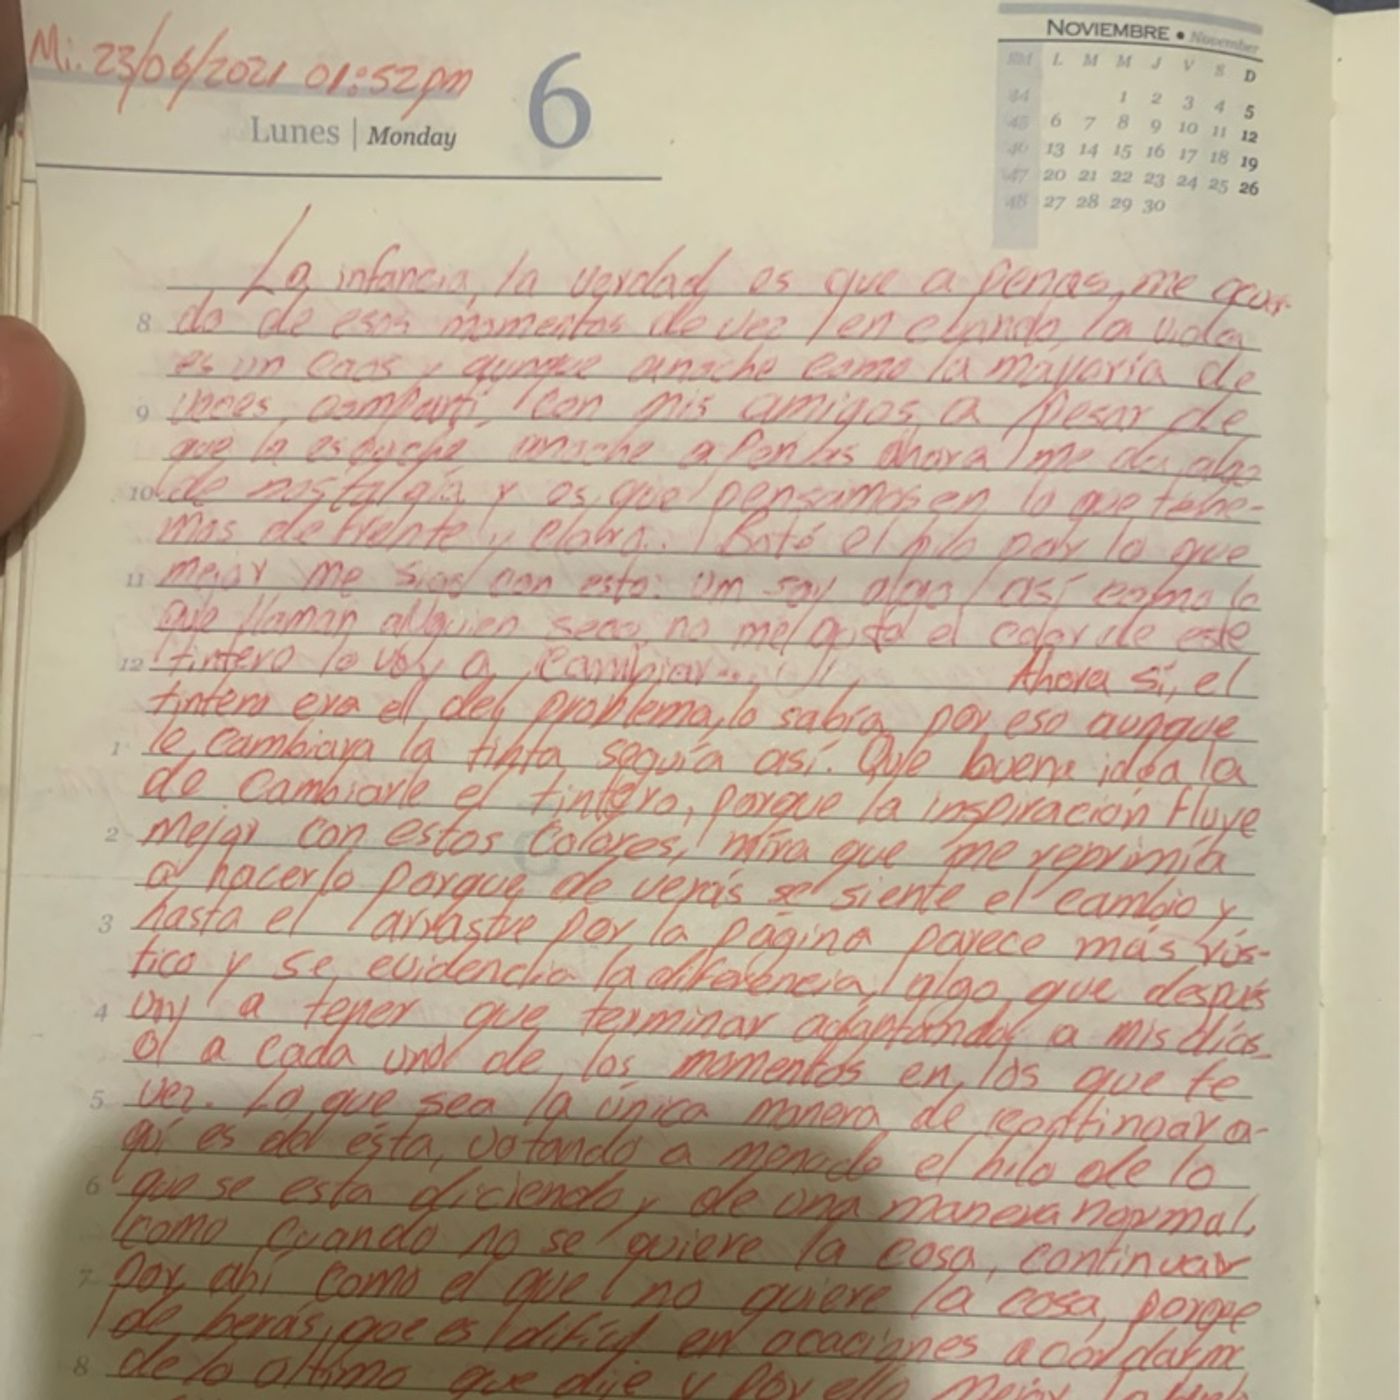 Mi. 23/06/2021 01:52pm
Lunes | Monday 6
NOVIEMBRE • November
SM L M M J V S D
44 1 2 3 4 5
45 6 7 8 9 10 11 12
46 13 14 15 16 17 18 19
47 20 21 22 23 24 25 26
48 27 28 29 30
La infancia, la verdad es que a penas, me acuer-
8 do de esos momentos de vez en cuando, la vida
es un caos y aunque anoche como la mayoría de
9 veces, compartí con mis amigos, a pesar de
que la escuché anoche a penas ahora me da algo
10 de nostalgia y es que pensamos en lo que tene-
mos de frente y claro.. Boté el hilo por lo que
11 mejor me sigo con esto: Um soy algo así como lo
que llaman alguien seco, no me gustó el color de este
12 tintero lo voy a cambiar... Ahora sí, el
tintero era el del problema, lo sabía por eso aunque
1 le cambiara la tinta seguía así. Que buena idea la
de cambiarle el tintero, porque la inspiración fluye
2 mejor con estos colores, mira que me reprimía
a hacerlo porque de verás se siente el cambio y
3 hasta el arrastre por la página parece más rús-
tico y se evidencia la diferencia, algo que después
4 voy a tener que terminar adaptando a mis días
o a cada uno de los momentos en los que te
5 vez. Lo que sea la única manera de continuar a-
quí es de ésta, votando a menudo el hilo de lo
6 que se esta diciendo y de una manera normal,
como cuando no se quiere la cosa, continuar
7 por ahí como el que no quiere la cosa, porque
de berás, que es difícil en ocaciones acordarm
8 de lo último que dije y por ello mejor